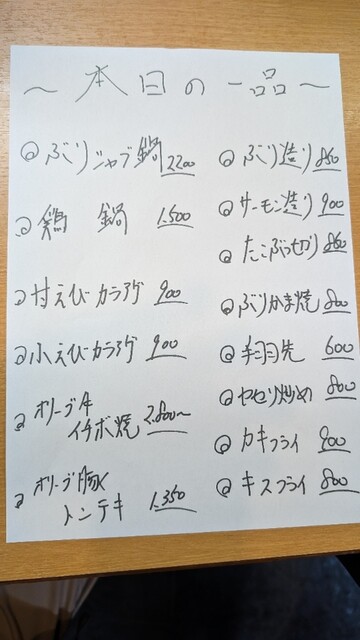 ～本日の一品～
@ぶりシャブ鍋 2200
@鶏 鍋 1.500
@甘えびカラアゲ 900
@小えびカラアゲ 900
@オリーブ牛
イチボ焼 2.800～
@オリーブ豚
トンテキ 1.350
@ぶり造り 850
@サーモン造り 900
@たこぶつ切り 850
@ぶりかま焼 800
@手羽先 600
@セセリ炒め 800
@カキフライ 900
@キスフライ 800